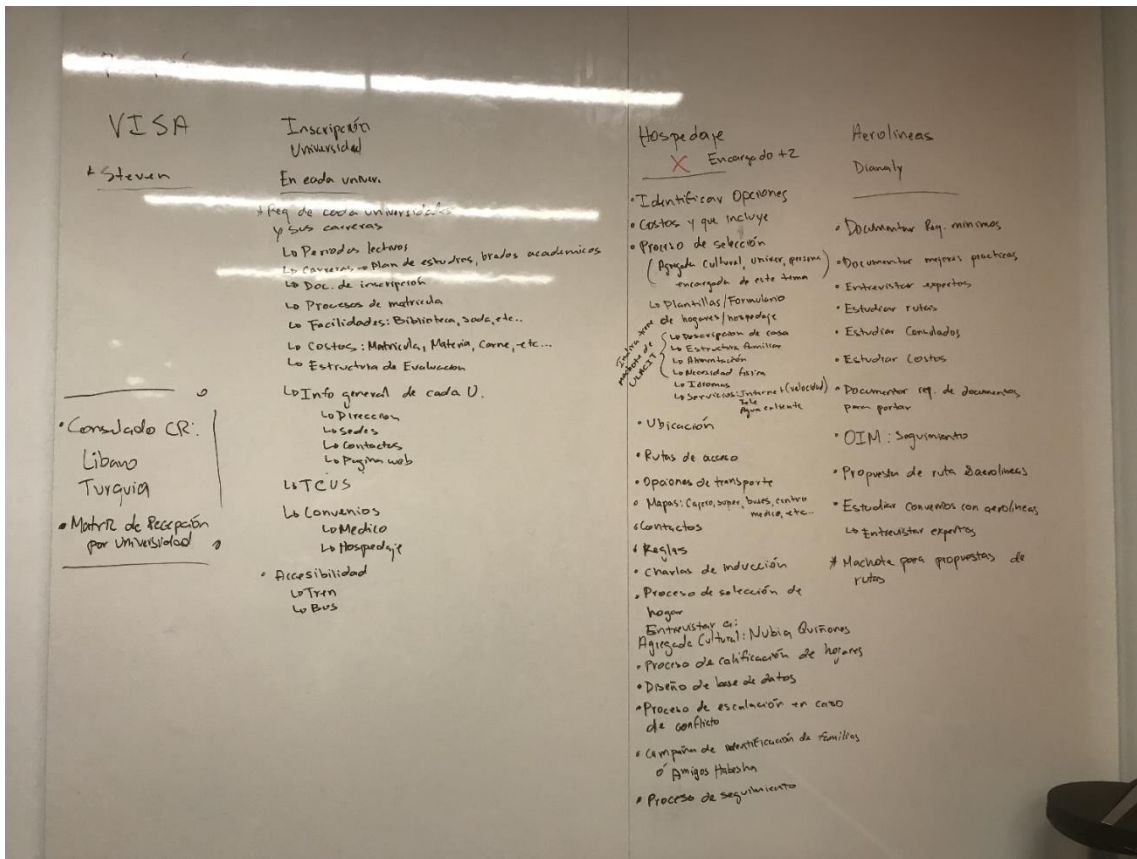 VISA
* Steven
• Consulado CR:
Libano
Turquia
• Matriz de Recepción
por Universidad
Inscripción
Universidad
En cada univer.
* Req de cada universidades
y sus carreras
↳ Periodos lectivos
↳ Carreras → Plan de estudios, Grados academicos
↳ Doc. de inscripción
↳ Procesos de matricula
↳ Facilidades: Biblioteca, soda, etc..
↳ Costos: Matricula, Materia, Carne, etc...
↳ Estructura de Evaluacion
↳ Info general de cada U.
↳ Direccion
↳ Sedes
↳ Contactos
↳ Pagina web
↳ TCUS
↳ Convenios
↳ Medico
↳ Hospedaje
• Accesibilidad
↳ Tren
↳ Bus
Hospedaje
X Encargado +2
• Identificar Opciones
• Costos y que incluye
• Proceso de selección
(Agregada Cultural, univer, persona
encargada de este tema)
↳ Plantillas/Formulario
de hogares/hospedaje
machote de
ULACIT
↳ Descripcion de casa
↳ Estructura familiar
↳ Alimentación
↳ Necesidad fisica
↳ Idiomas
↳ Servicios: Internet (velocidad)
Tele
Agua caliente
• Ubicación
• Rutas de acceso
• Opciones de transporte
• Mapas: Cajero, super, buses, centro
medico, etc..
• Contactos
• Reglas
• Charlas de inducción
• Proceso de selección de
hogar
Entrevistar a:
Agregada Cultural: Nubia Quiñones
• Proceso de calificación de hogares
• Diseño de base de datos
• Proceso de escalación en caso
de conflicto
• Campaña de identificación de familias
ó Amigos Habesha
• Proceso de seguimiento
Aerolineas
Dianaly
• Documentar Req. minimos
• Documentar mejores practicas
• Entrevistar expertos
• Estudiar rutas
• Estudiar Consulados
• Estudiar Costos
• Documentar req. de documentos
para portar
• OIM: Seguimiento
• Propuesta de ruta & aerolineas
• Estudiar convenios con aerolineas
↳ Entrevistar expertos
* Machote para propuestas de
rutas